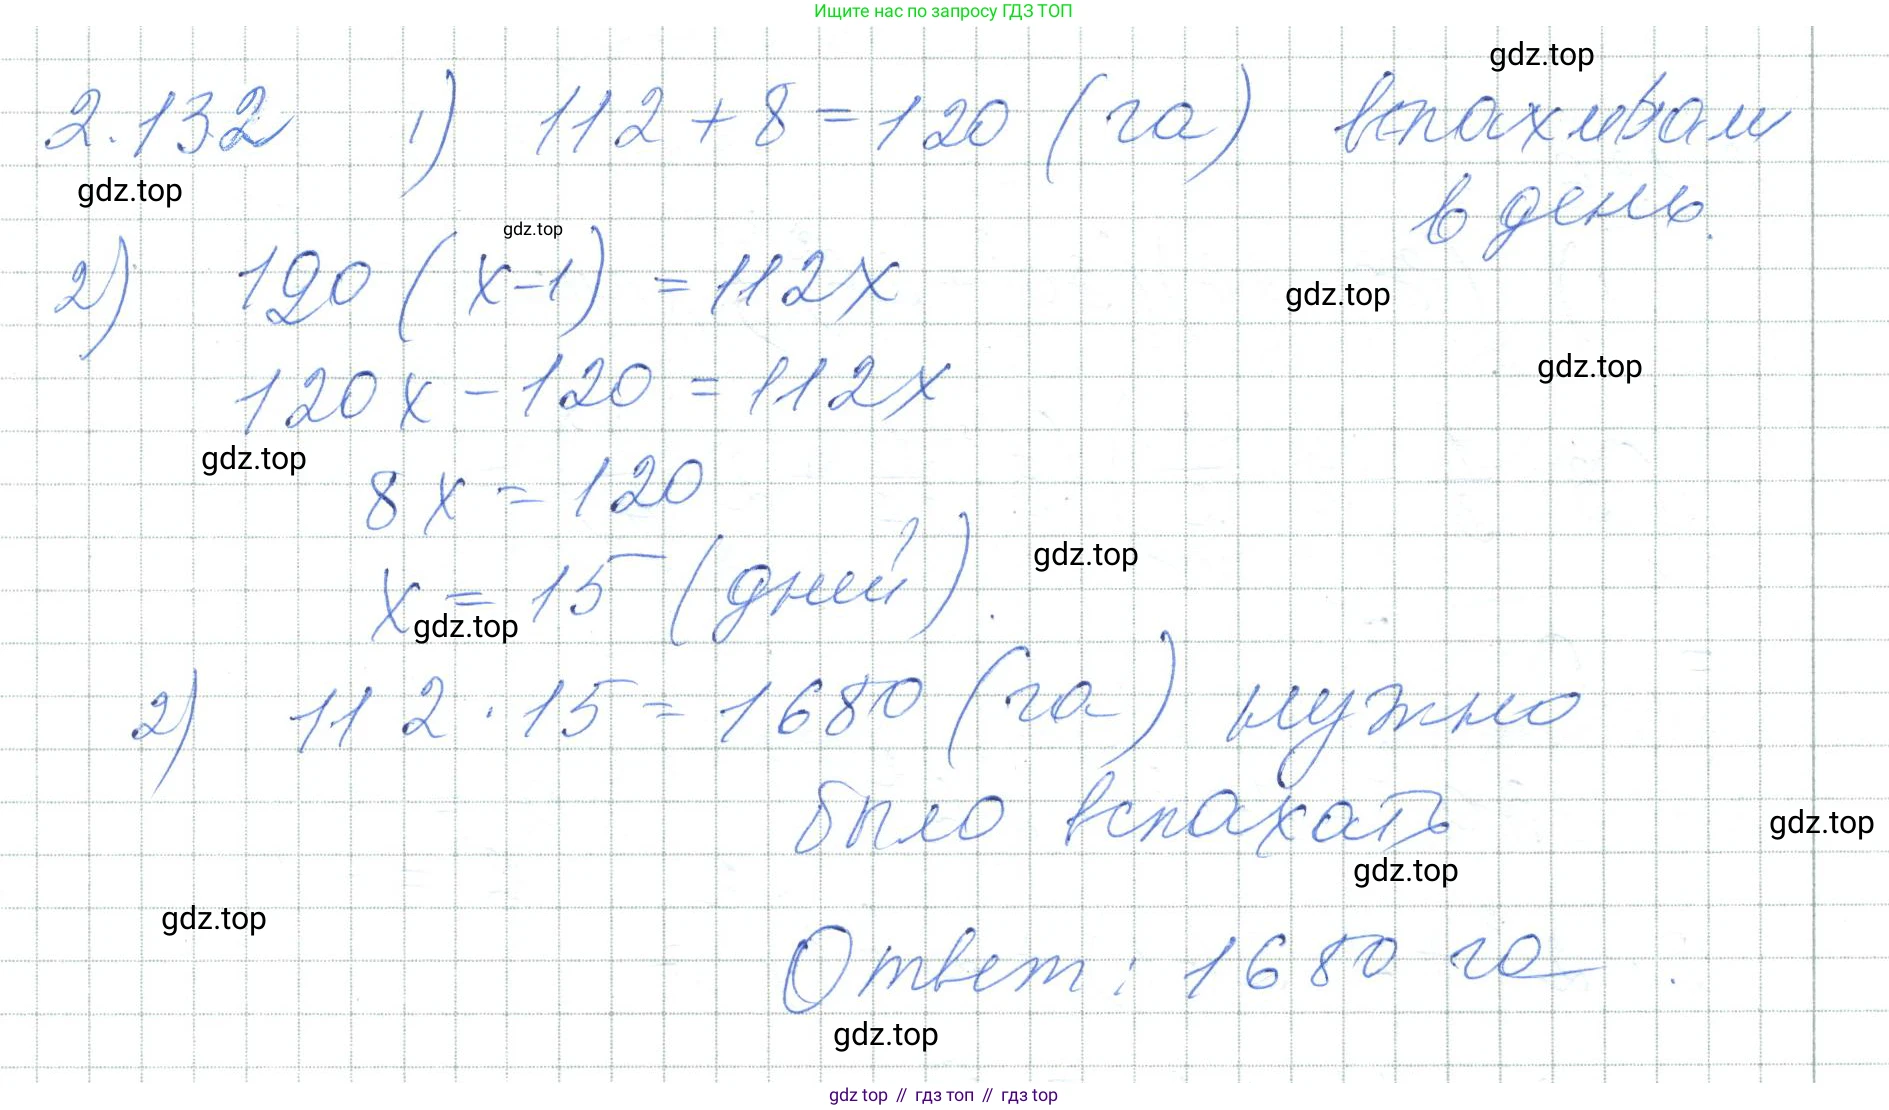 Ищите нас по запросу ГДЗ ТОП
gdz.top
2.132 1) 112 + 8 = 120 (га) вспахивали
gdz.top
в день.
gdz.top
2) 120 (x-1) = 112x
gdz.top
gdz.top
120x - 120 = 112x
gdz.top
8x = 120
gdz.top
x = 15 (дней).
gdz.top
2) 112 · 15 = 1680 (га) нужно
было вспахать
gdz.top
gdz.top
gdz.top
Ответ: 1680 га.
gdz.top
gdz top // гдз топ // гдз top